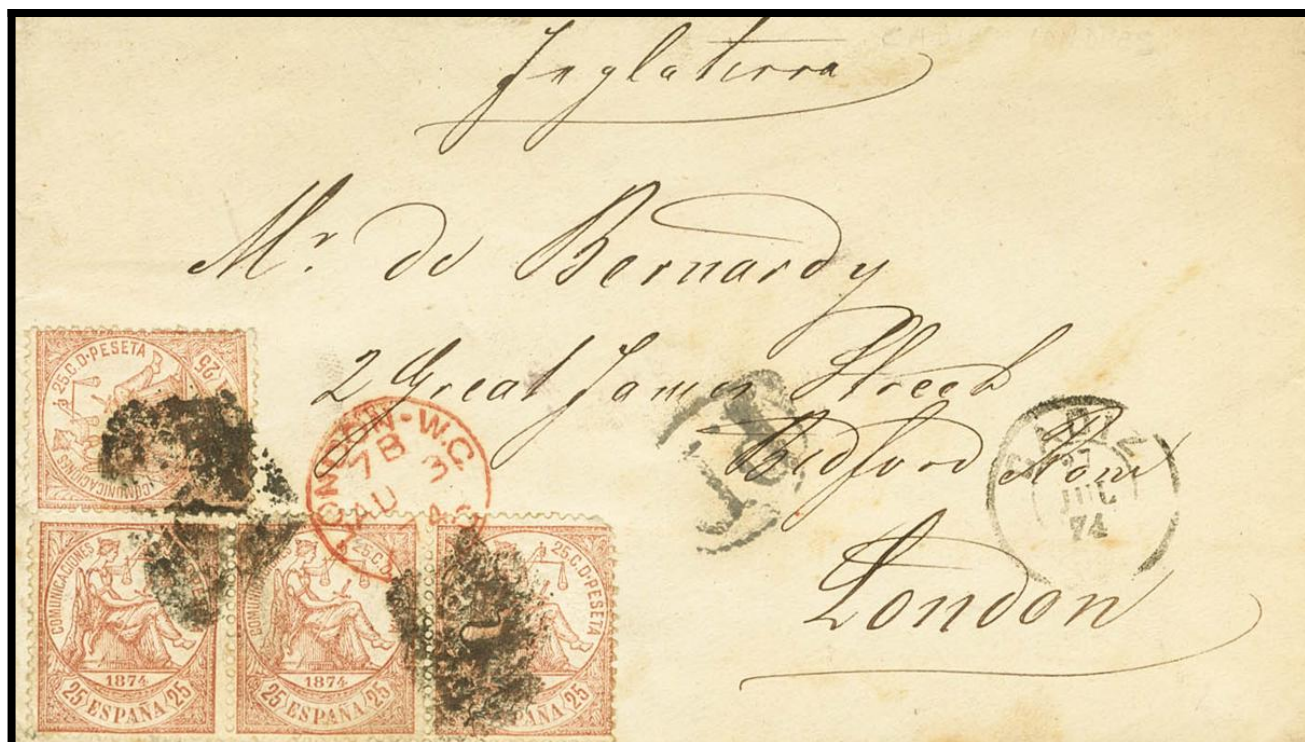 Inglaterra
Mr. de Bernardy
2 Great James Street
Bedford Row
London
CADIZ
27
JUL
74
P.D
LONDON-W.C
7B
AU 3
74
25 C. D. PESETA
COMUNICACIONES
25
COMUNICACIONES
1874
25 ESPAÑA 25
COMUNICACIONES
25 C. D.
1874
25 ESPAÑA 25
25 C. D. PESETA
ESPAÑA 25